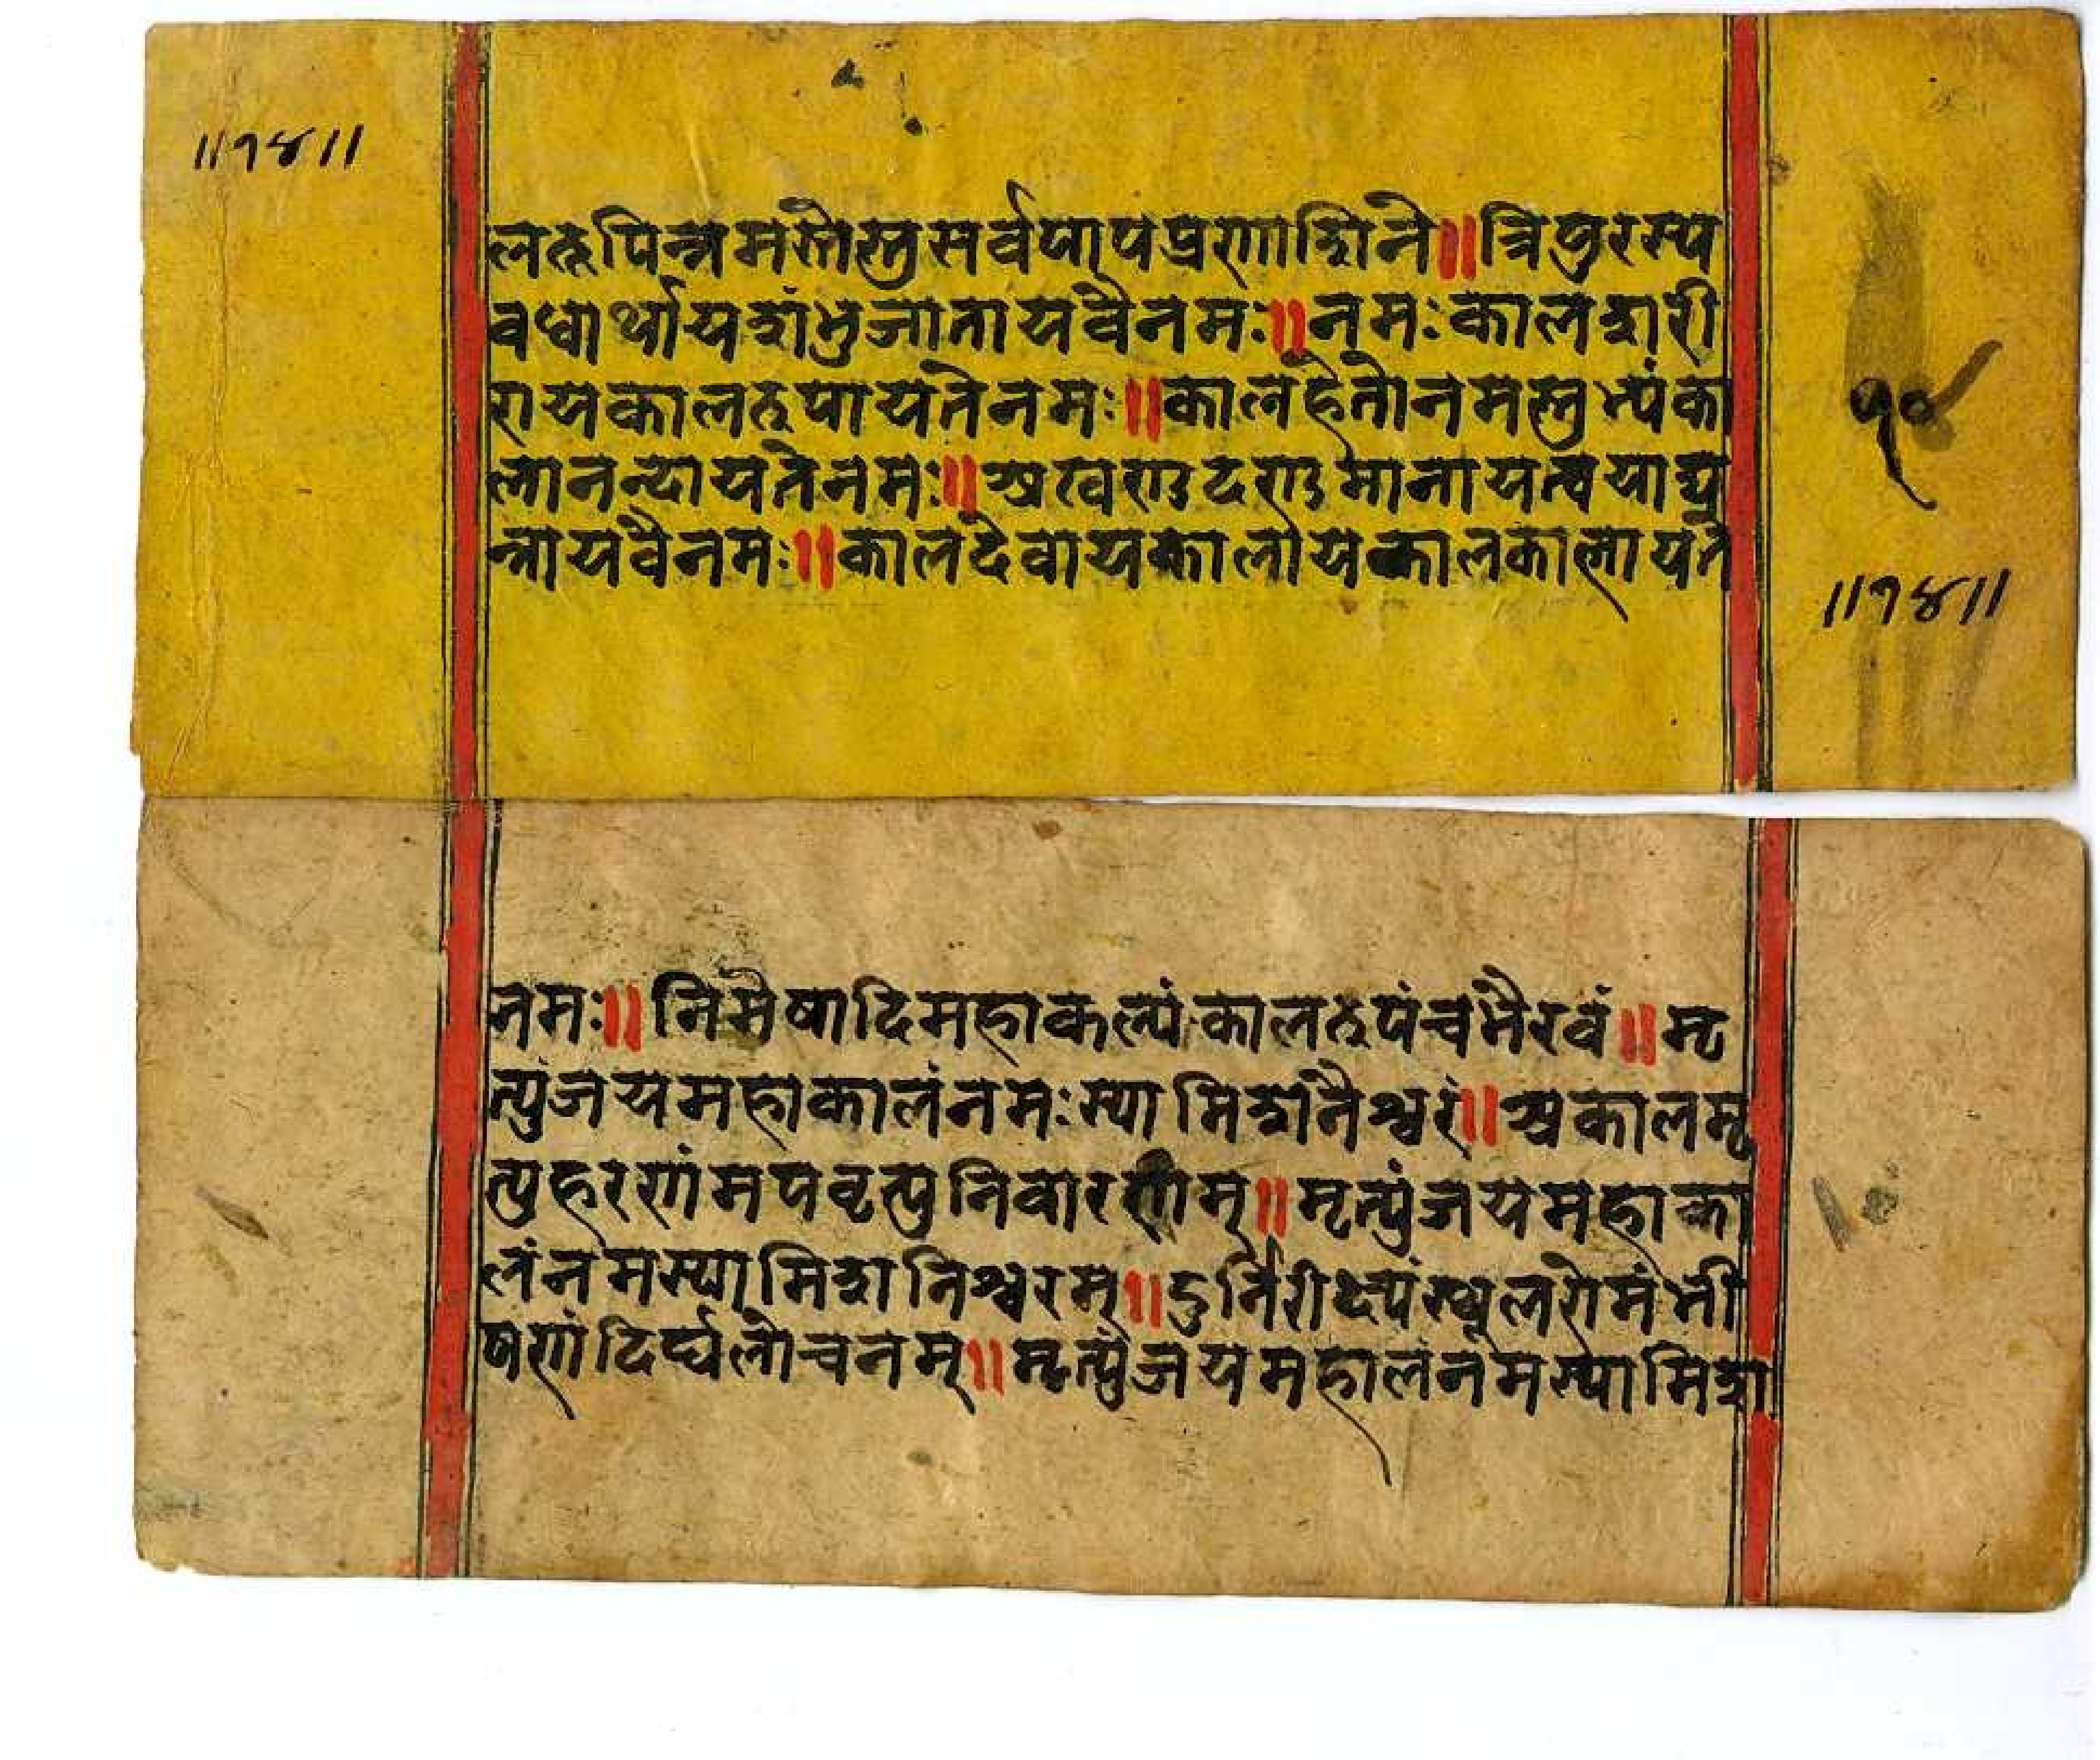 ॥१४॥
लरूपिन्नमस्तेस्तुसर्वपापप्रणाशिने॥त्रिपुरस्य
वधार्थायशंभुजातायवैनमः॥नमःकालशरी
रायकालरूपायतेनमः॥कालहेतोनमस्तुभ्यंका
लानन्दायतेनमः॥अखण्डदण्डमानायत्वयाद्य
न्नायवैनमः॥कालदेवायकालायकालकालायते
१०
॥१४॥
नमः॥निमेषादिमहाकल्पंकालरूपंचभैरवं॥मृ
त्युंजयमहाकालंनमःस्यामिशनैश्वरं॥अकालमृ
त्युहरणंमपवृत्युनिवारणम्॥मृत्युंजयमहाका
लंनमस्यामिशनिश्वरम्॥दुर्निरीक्ष्यंस्थूलरोमंभी
षणंदिर्घलोचनम्॥मृत्युंजयमहालंनमस्यामिश